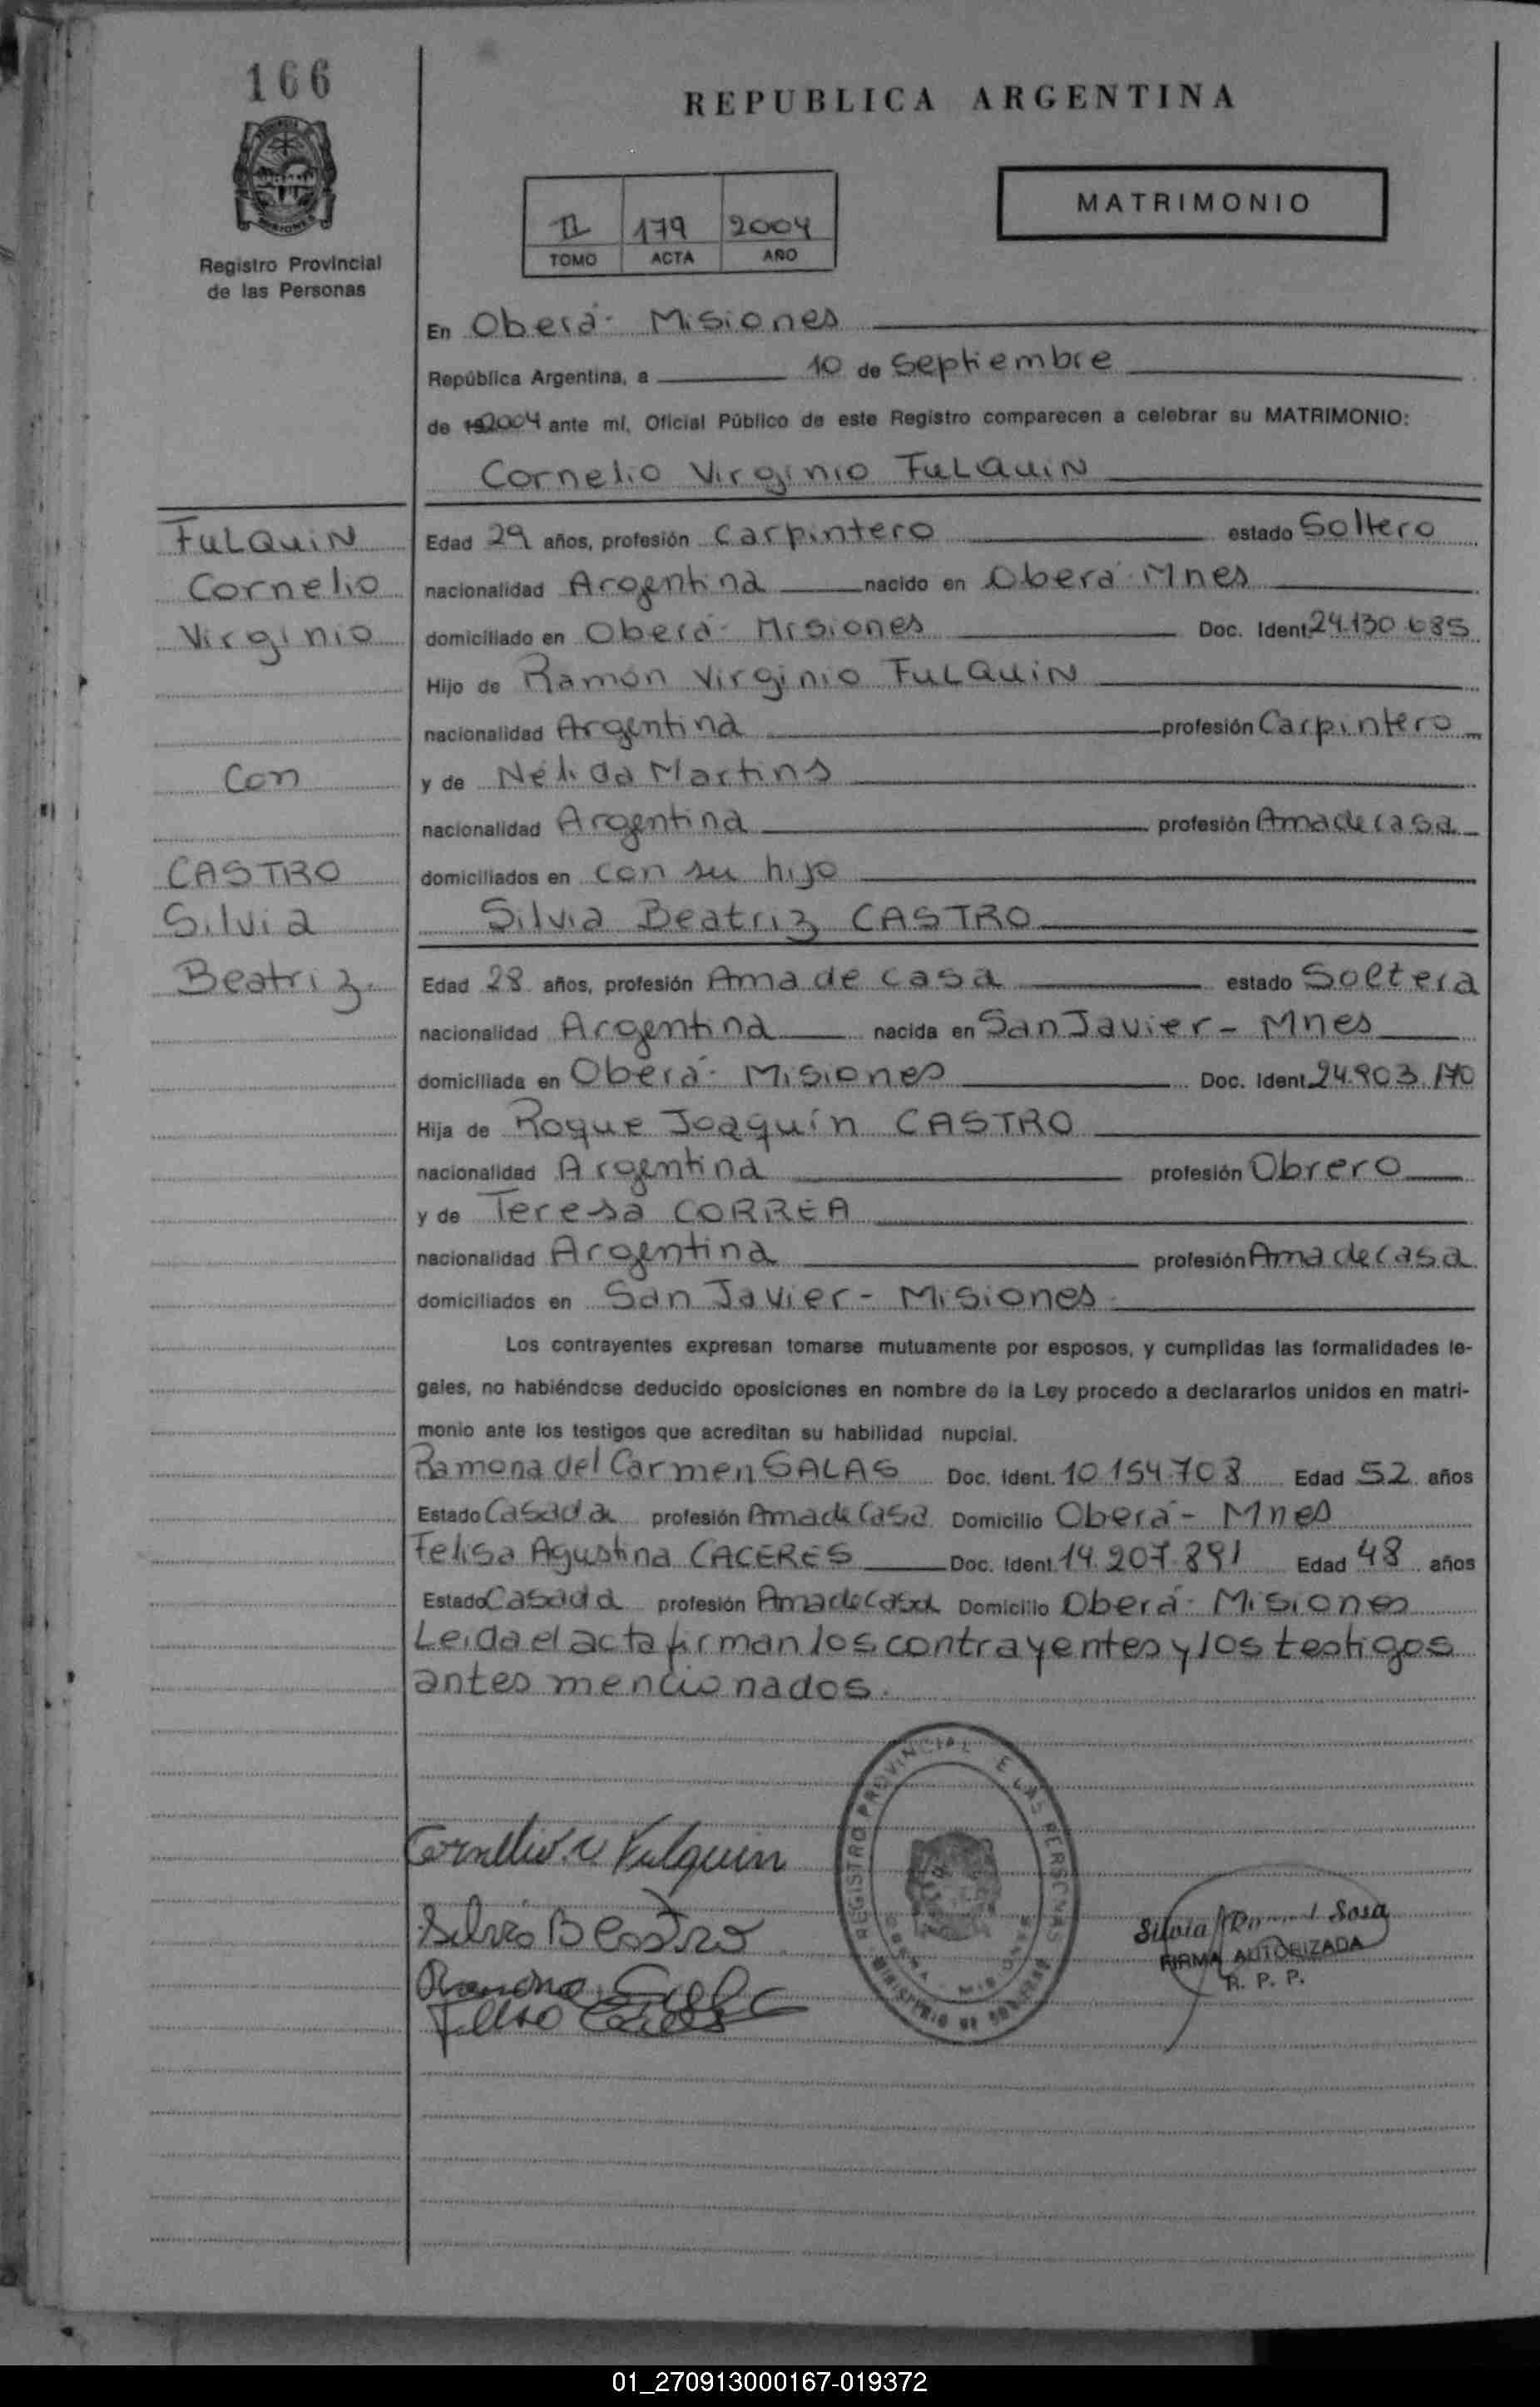 166
REPUBLICA ARGENTINA
II 179 2004
TOMO ACTA AÑO
MATRIMONIO
Registro Provincial
de las Personas
En Oberá - Misiones
República Argentina, a 10 de Septiembre
de 192004 ante mí, Oficial Público de este Registro comparecen a celebrar su MATRIMONIO:
Cornelio Virginio FULQUIN
FULQUIN
Cornelio
Virginio
Con
CASTRO
Silvia
Beatriz
Edad 29 años, profesión Carpintero estado Soltero
nacionalidad Argentina nacido en Oberá - Mnes
domiciliado en Oberá - Misiones Doc. Ident. 24.130.685
Hijo de Ramón Virginio FULQUIN
nacionalidad Argentina profesión Carpintero
y de Nélida Martins
nacionalidad Argentina profesión Ama de casa
domiciliados en con su hijo
Silvia Beatriz CASTRO
Edad 28 años, profesión Ama de casa estado Soltera
nacionalidad Argentina nacida en San Javier - Mnes
domiciliada en Oberá - Misiones Doc. Ident. 24.903.170
Hija de Roque Joaquín CASTRO
nacionalidad Argentina profesión Obrero
y de Teresa CORREA
nacionalidad Argentina profesión Ama de casa
domiciliados en San Javier - Misiones
Los contrayentes expresan tomarse mutuamente por esposos, y cumplidas las formalidades le-
gales, no habiéndose deducido oposiciones en nombre de la Ley procedo a declararlos unidos en matri-
monio ante los testigos que acreditan su habilidad nupcial.
Ramona del Carmen SALAS Doc. Ident. 10.154.708 Edad 52 años
Estado Casada profesión Ama de Casa Domicilio Oberá - Mnes
Felisa Agustina CACERES Doc. Ident. 14.207.891 Edad 48 años
Estado Casada profesión Ama de Casa Domicilio Oberá - Misiones
Leida el acta firman los contrayentes y los testigos
antes mencionados.
Cornelio V Fulquin
Silvia B Castro
Ramona Salas
Felisa Caceres
REGISTRO PROVINCIAL E LAS PERSONAS
MINISTERIO DE GOBIERNO
Silvia Sosa
FIRMA AUTORIZADA
R. P. P.
01_270913000167-019372